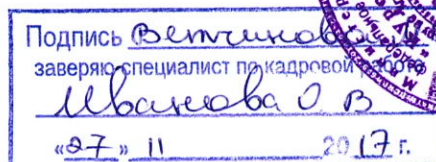 Подпись
заверяю специалист по кадровой работе
Иванова О. В
«27» 11 2017 г.